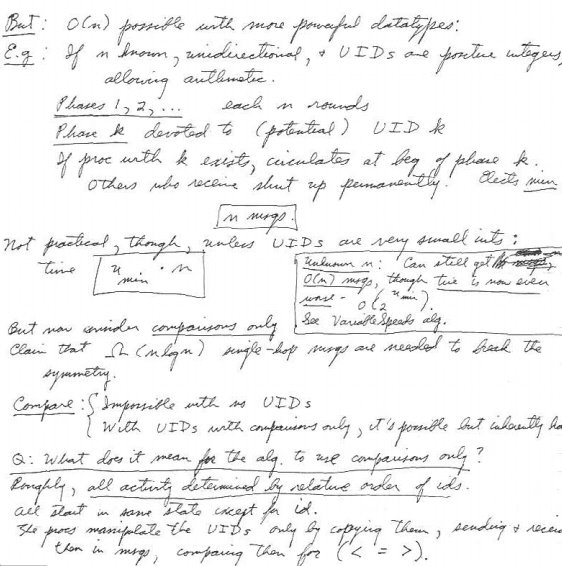 But: O(n) possible with more powerful datatypes.
E.g: If n known, unidirectional, + UIDs are positive integers,
allowing arithmetic.
Phases 1, 2, ... each n rounds
Phase k devoted to (potential) UID k
If proc with k exists, circulates at beg of phase k.
Others who receive shut up permanently. Elects min
n msgs.
Not practical, though, unless UIDs are very small ints:
time u min · n
Unknown n: Can still get
O(n) msgs, though time is now even
worse - O(2^u min).
See VariableSpeeds alg.
But now consider comparisons only
Claim that Ω(n log n) single-hop msgs are needed to break the
symmetry.
Compare: { Impossible with no UIDs
With UIDs with comparisons only, it's possible but inherently
Q: What does it mean for the alg. to use comparisons only?
Roughly, all activity determined by relative order of ids.
All start in same state except for id.
The procs manipulate the UIDs only by copying them, sending + recei
them in msgs, comparing them for (< = >).